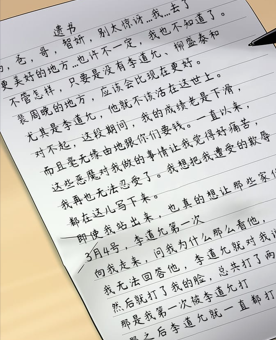 遗书
爸，哥，智妍，别太惊讶…我…去了
更美好的地方…也许不一定，我也不知道了。
不管怎样，只要是没有李道允、柳盛泰和
裴周晚的地方，应该会比现在更好。
尤其是李道允，他就不该活在这世上。
对不起，这段期间，我的成绩老是下滑，
而且毫无缘由地跟你们要钱。一直以来，
这些恶魔对我做的事情让我觉得好痛苦，
我再也无法忍受了。我想把我遭受的欺辱
都在这儿写下来。
即使我站出来，也真的想让那些家
3月4号，李道允第一次
向我走来，问我为什么那么看他，
我无法回答他，李道允就对我说
然后就打了我的脸，总共打了两
那是我第一次被李道允打
之后李道允就一直都打